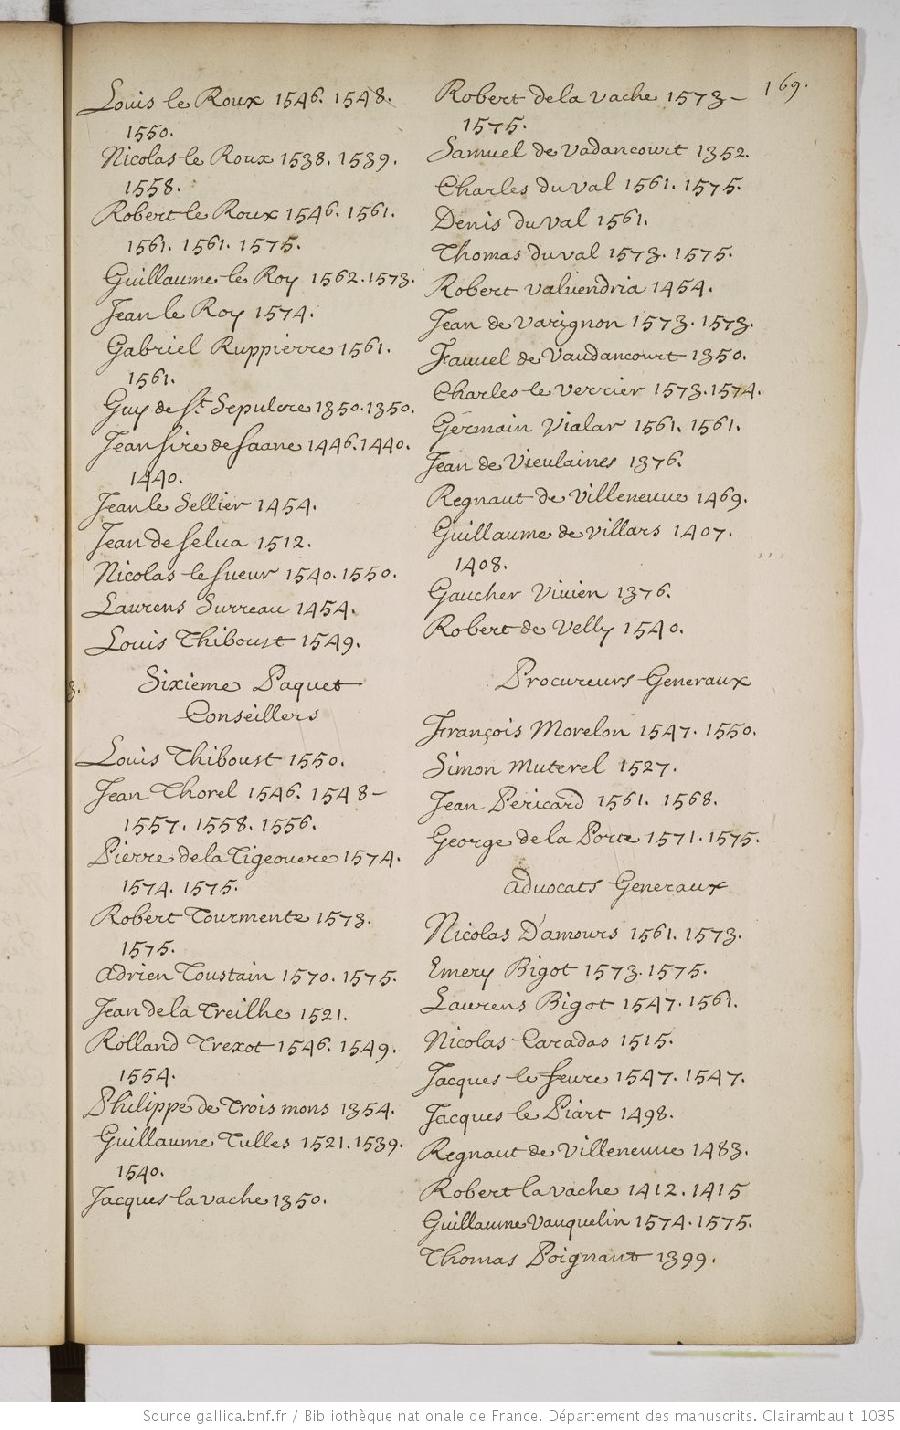 169.
Louis le Roux 1546. 1548.
1550.
Nicolas le Roux 1538. 1539.
1558.
Robert le Roux 1546. 1561.
1561. 1561. 1575.
Guillaume le Roy 1562. 1573.
Jean le Roy 1574.
Gabriel Ruppierre 1561.
1561.
Guy de St. Sepulcre 1350. 1350.
Jean sire de saane 1446. 1440.
1440.
Jean le Sellier 1454.
Jean de selua 1512.
Nicolas le sueur 1540. 1550.
Laurens Surreau 1454.
Louis Thiboust 1549.
Sixieme Paquet
Conseillers
Louis Thiboust 1550.
Jean Thorel 1546. 1548-
1557. 1558. 1556.
Pierre de la Tigeouere 1574.
1574. 1575.
Robert Tourmente 1573.
1575.
Adrien Toustain 1570. 1575.
Jean de la Treilhe 1521.
Rolland Trexot 1546. 1549.
1554.
Philippe de Trois mons 1354.
Guillaume Tulles 1521. 1539.
1540.
Jacques la vache 1350.
Robert de la vache 1573-
1575.
Samuel de vadancourt 1352.
Charles du val 1561. 1575.
Denis du val 1561.
Thomas du val 1573. 1575.
Robert valuendria 1454.
Jean de varignon 1573. 1573.
Fauuel de Vaudancourt 1350.
Charles le verrier 1573. 1574.
Germain Vialar 1561. 1561.
Jean de Vieulaines 1376.
Regnaut de Villeneuue 1469.
Guillaume de Villars 1407.
1408.
Gaucher Viuien 1376.
Robert de Velly 1540.
Procureurs Generaux
François Morelon 1547. 1550.
Simon Muterel 1527.
Jean Pericard 1561. 1568.
George de la Porte 1571. 1575.
Aduocats Generaux
Nicolas D'amours 1561. 1573.
Emery Bigot 1573. 1575.
Laurens Bigot 1547. 1561.
Nicolas Caradas 1515.
Jacques le feure 1547. 1547.
Jacques le Piart 1498.
Regnaut de Villeneuue 1483.
Robert la vache 1412. 1415
Guillaume vauquelin 1574. 1575.
Thomas Poignant 1399.
Source gallica.bnf.fr / Bibliothèque nationale de France. Département des manuscrits. Clairambault 1035